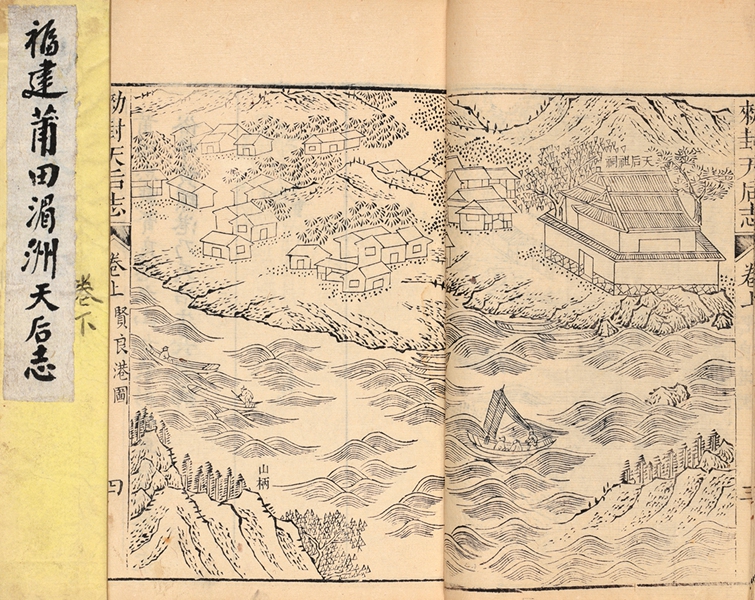 福建莆田湄洲天后志
卷下
敕封天后志
卷上
三
天后祖祠
勅封天后志
卷上
賢良港圖
四
山柄